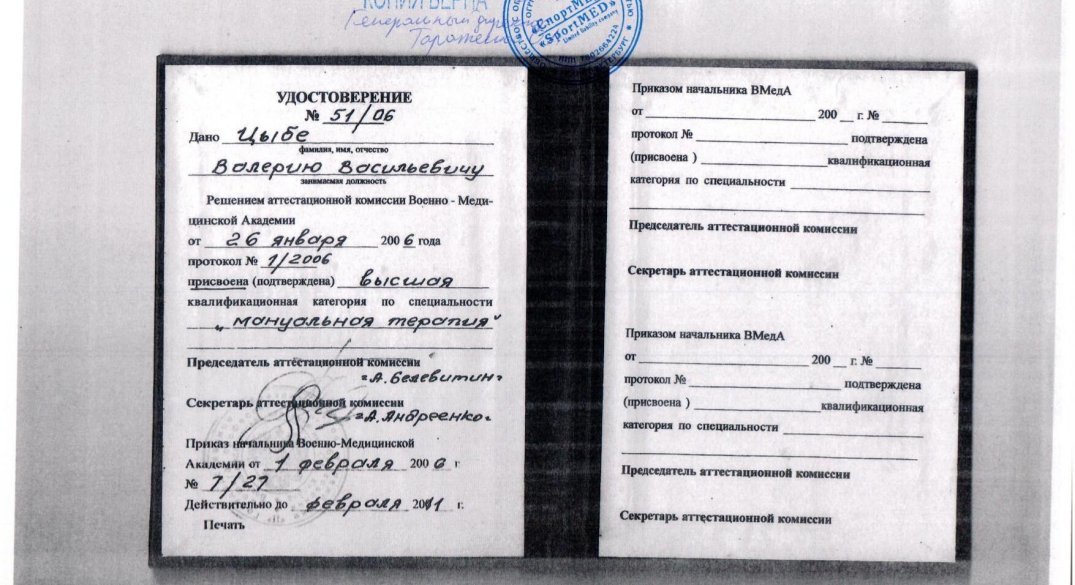 КОПИЯ ВЕРНА
Генеральный
«СпортМЕД»
«SportMED»
Limited liability company
УДОСТОВЕРЕНИЕ
№ 51/06
Дано Цыбе
фамилия, имя, отчество
Валерию Васильевичу
занимаемая должность
Решением аттестационной комиссии Военно - Меди-
цинской Академии
от 26 января 2006 года
протокол № 1/2006
присвоена (подтверждена) высшая
квалификационная категория по специальности
„мануальная терапия"
Председатель аттестационной комиссии
«А. Белевитин»
Секретарь аттестационной комиссии
«А. Андреенко»
Приказ начальника Военно-Медицинской
Академии от 1 февраля 2006 г
№ 7/27
Действительно до февраля 2011 г.
Печать
Приказом начальника ВМедА
от 200 г. №
протокол № подтверждена
(присвоена ) квалификационная
категория по специальности
Председатель аттестационной комиссии
Секретарь аттестационной комиссии
Приказом начальника ВМедА
от 200 г. №
протокол № подтверждена
(присвоена ) квалификационная
категория по специальности
Председатель аттестационной комиссии
Секретарь аттестационной комиссии